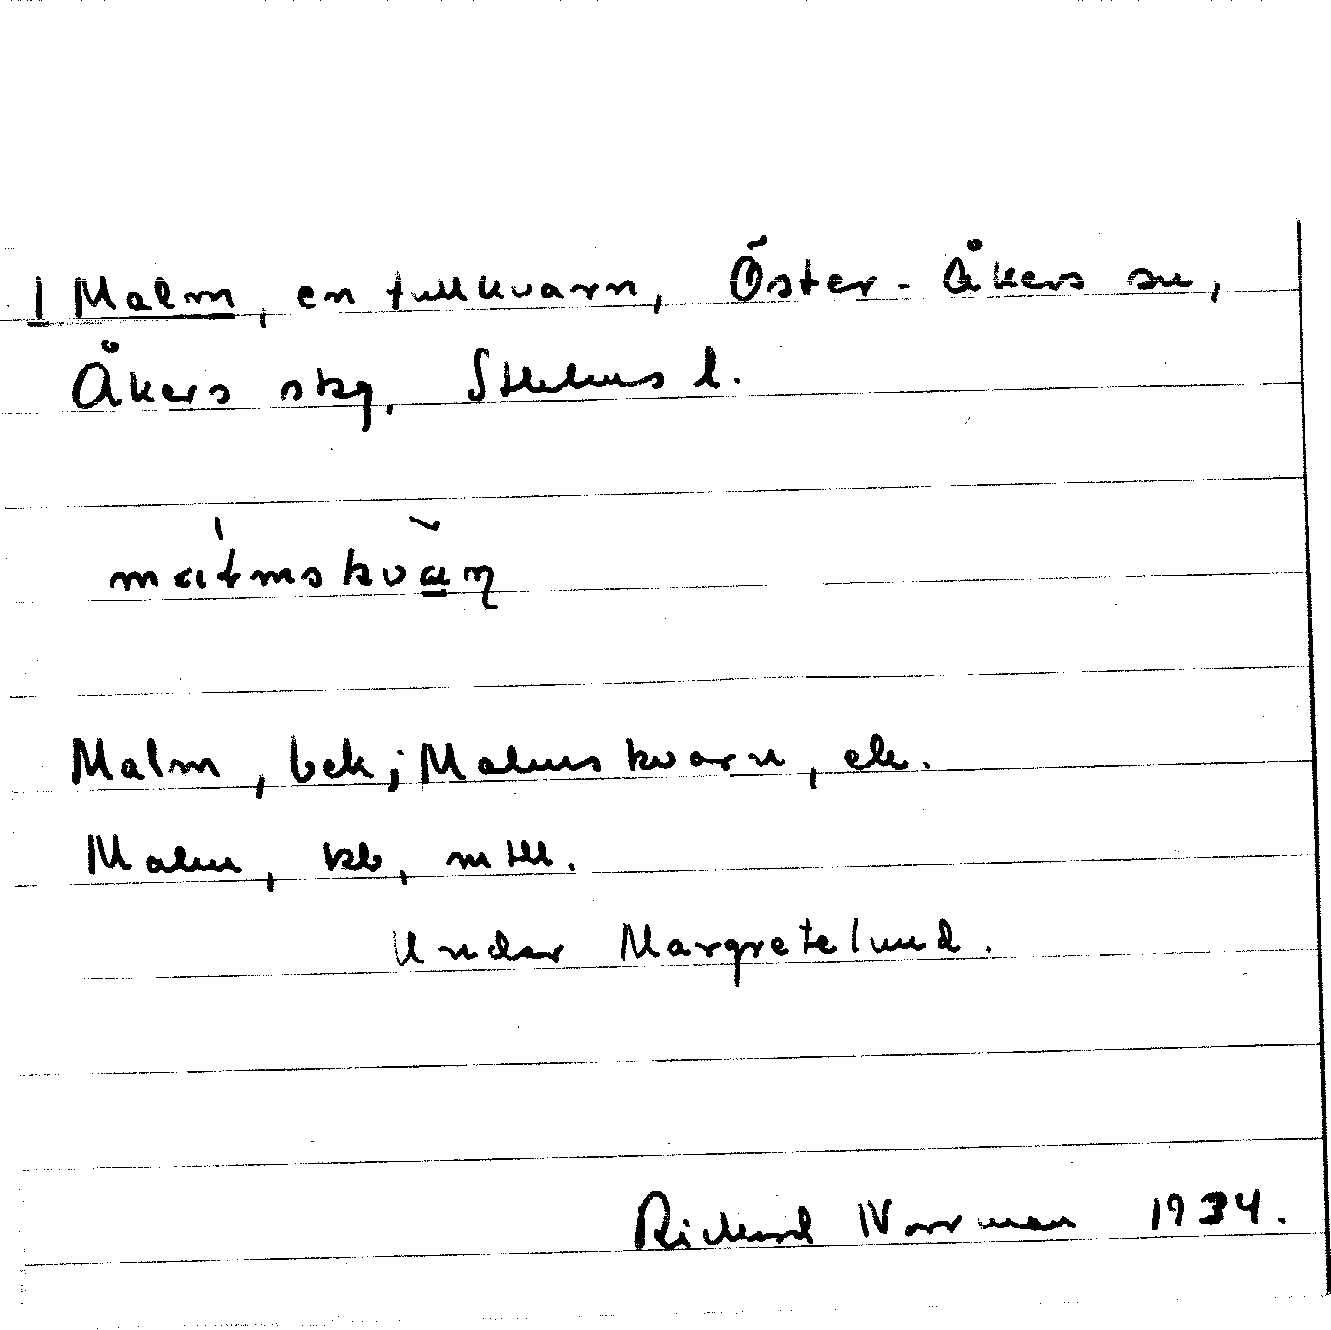 1 Malm, en tullkvarn, Öster-Åkers sn,
Åkers skg, Sthlms l.
Malm, bek; Malmskvarn, ek.
Malm, kb, mtll.
Under Margretelund.
Richard Norrman 1934.